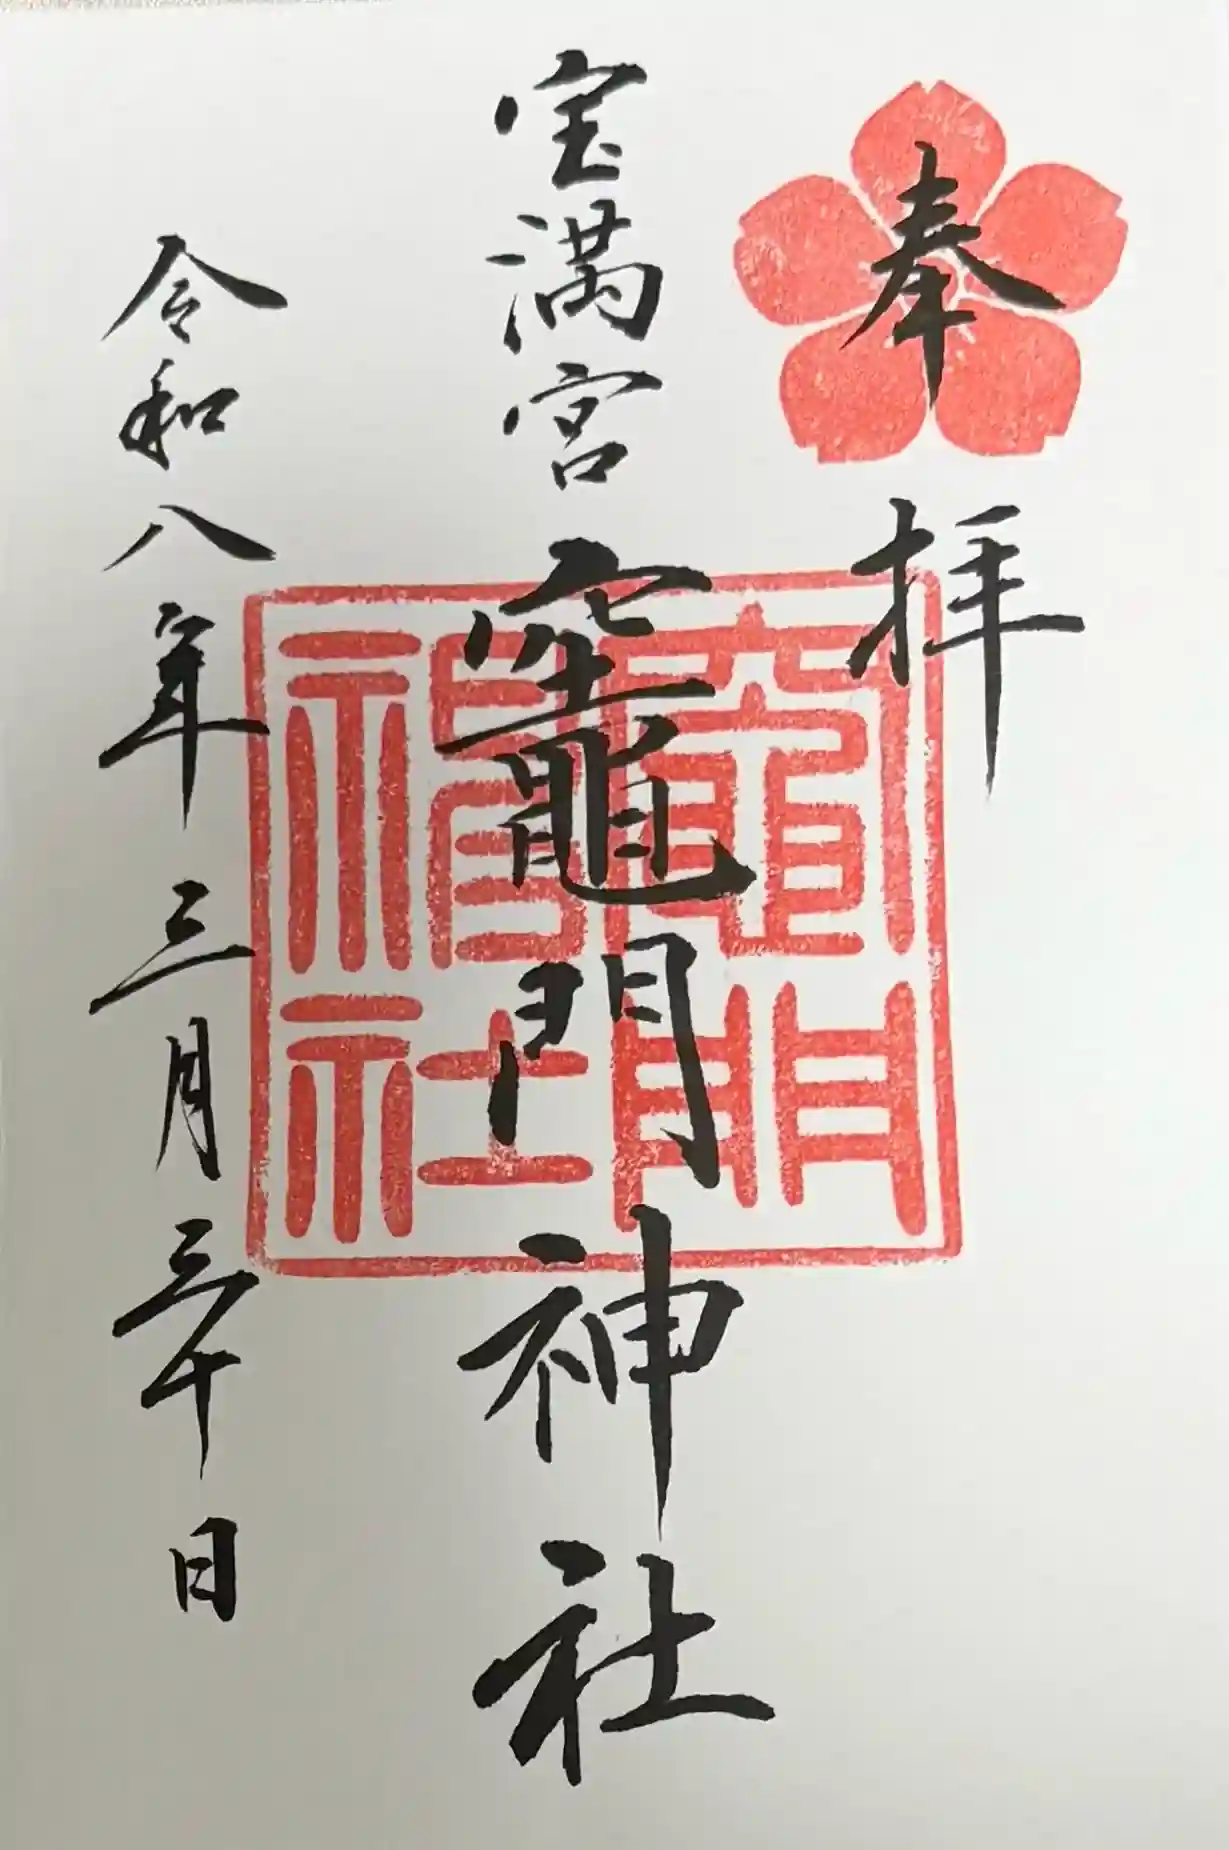 奉拝
宝満宮
竈門神社
竈門
神社
令和八年三月三十日